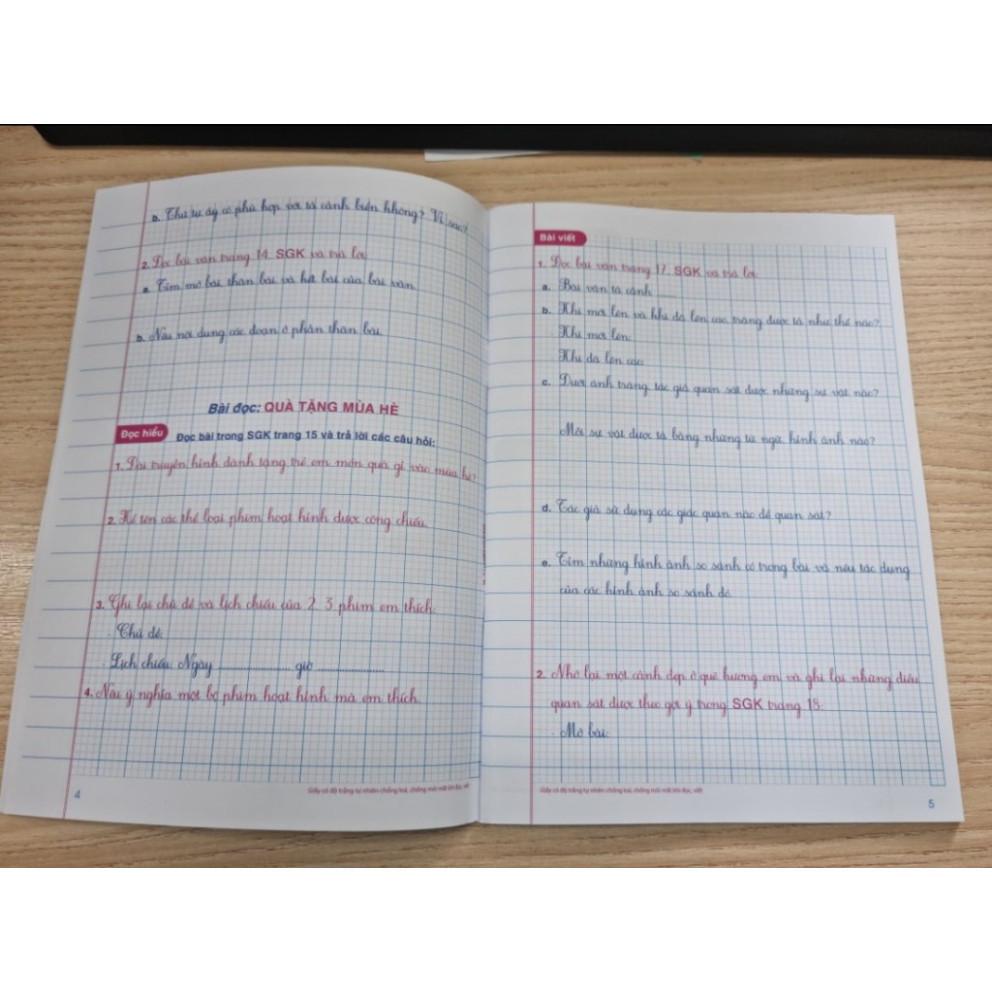 b. Thứ tự ấy có phù hợp với tả cảnh biển không? Vì sao?
2. Đọc bài văn trang 14 SGK và trả lời:
a. Tìm mở bài, thân bài và kết bài của bài văn.
b. Nêu nội dung các đoạn ở phần thân bài.
Bài đọc: QUÀ TẶNG MÙA HÈ
Đọc hiểu Đọc bài trong SGK trang 15 và trả lời các câu hỏi:
1. Đài truyền hình dành tặng trẻ em món quà gì vào mùa hè?
2. Kể tên các thể loại phim hoạt hình được công chiếu.
3. Ghi lại chủ đề và lịch chiếu của 2 - 3 phim em thích.
- Chủ đề:
- Lịch chiếu: Ngày .................... giờ ....................
4. Nêu ý nghĩa một bộ phim hoạt hình mà em thích.
Giấy có độ trắng tự nhiên chống loá, chống mỏi mắt khi đọc, viết
4
Bài viết
1. Đọc bài văn trang 17 SGK và trả lời:
a. Bài văn tả cảnh ......
b. Khi mới lên và khi đã lên cao, trăng được tả như thế nào?
Khi mới lên:
Khi đã lên cao:
c. Dưới ánh trăng, tác giả quan sát được những sự vật nào?
Mỗi sự vật được tả bằng những từ ngữ, hình ảnh nào?
d. Tác giả sử dụng các giác quan nào để quan sát?
e. Tìm những hình ảnh so sánh có trong bài và nêu tác dụng
của các hình ảnh so sánh đó.
2. Nhớ lại một cảnh đẹp ở quê hương em và ghi lại những điều
quan sát được theo gợi ý trong SGK trang 18:
- Mở bài:
Giấy có độ trắng tự nhiên chống loá, chống mỏi mắt khi đọc, viết
5